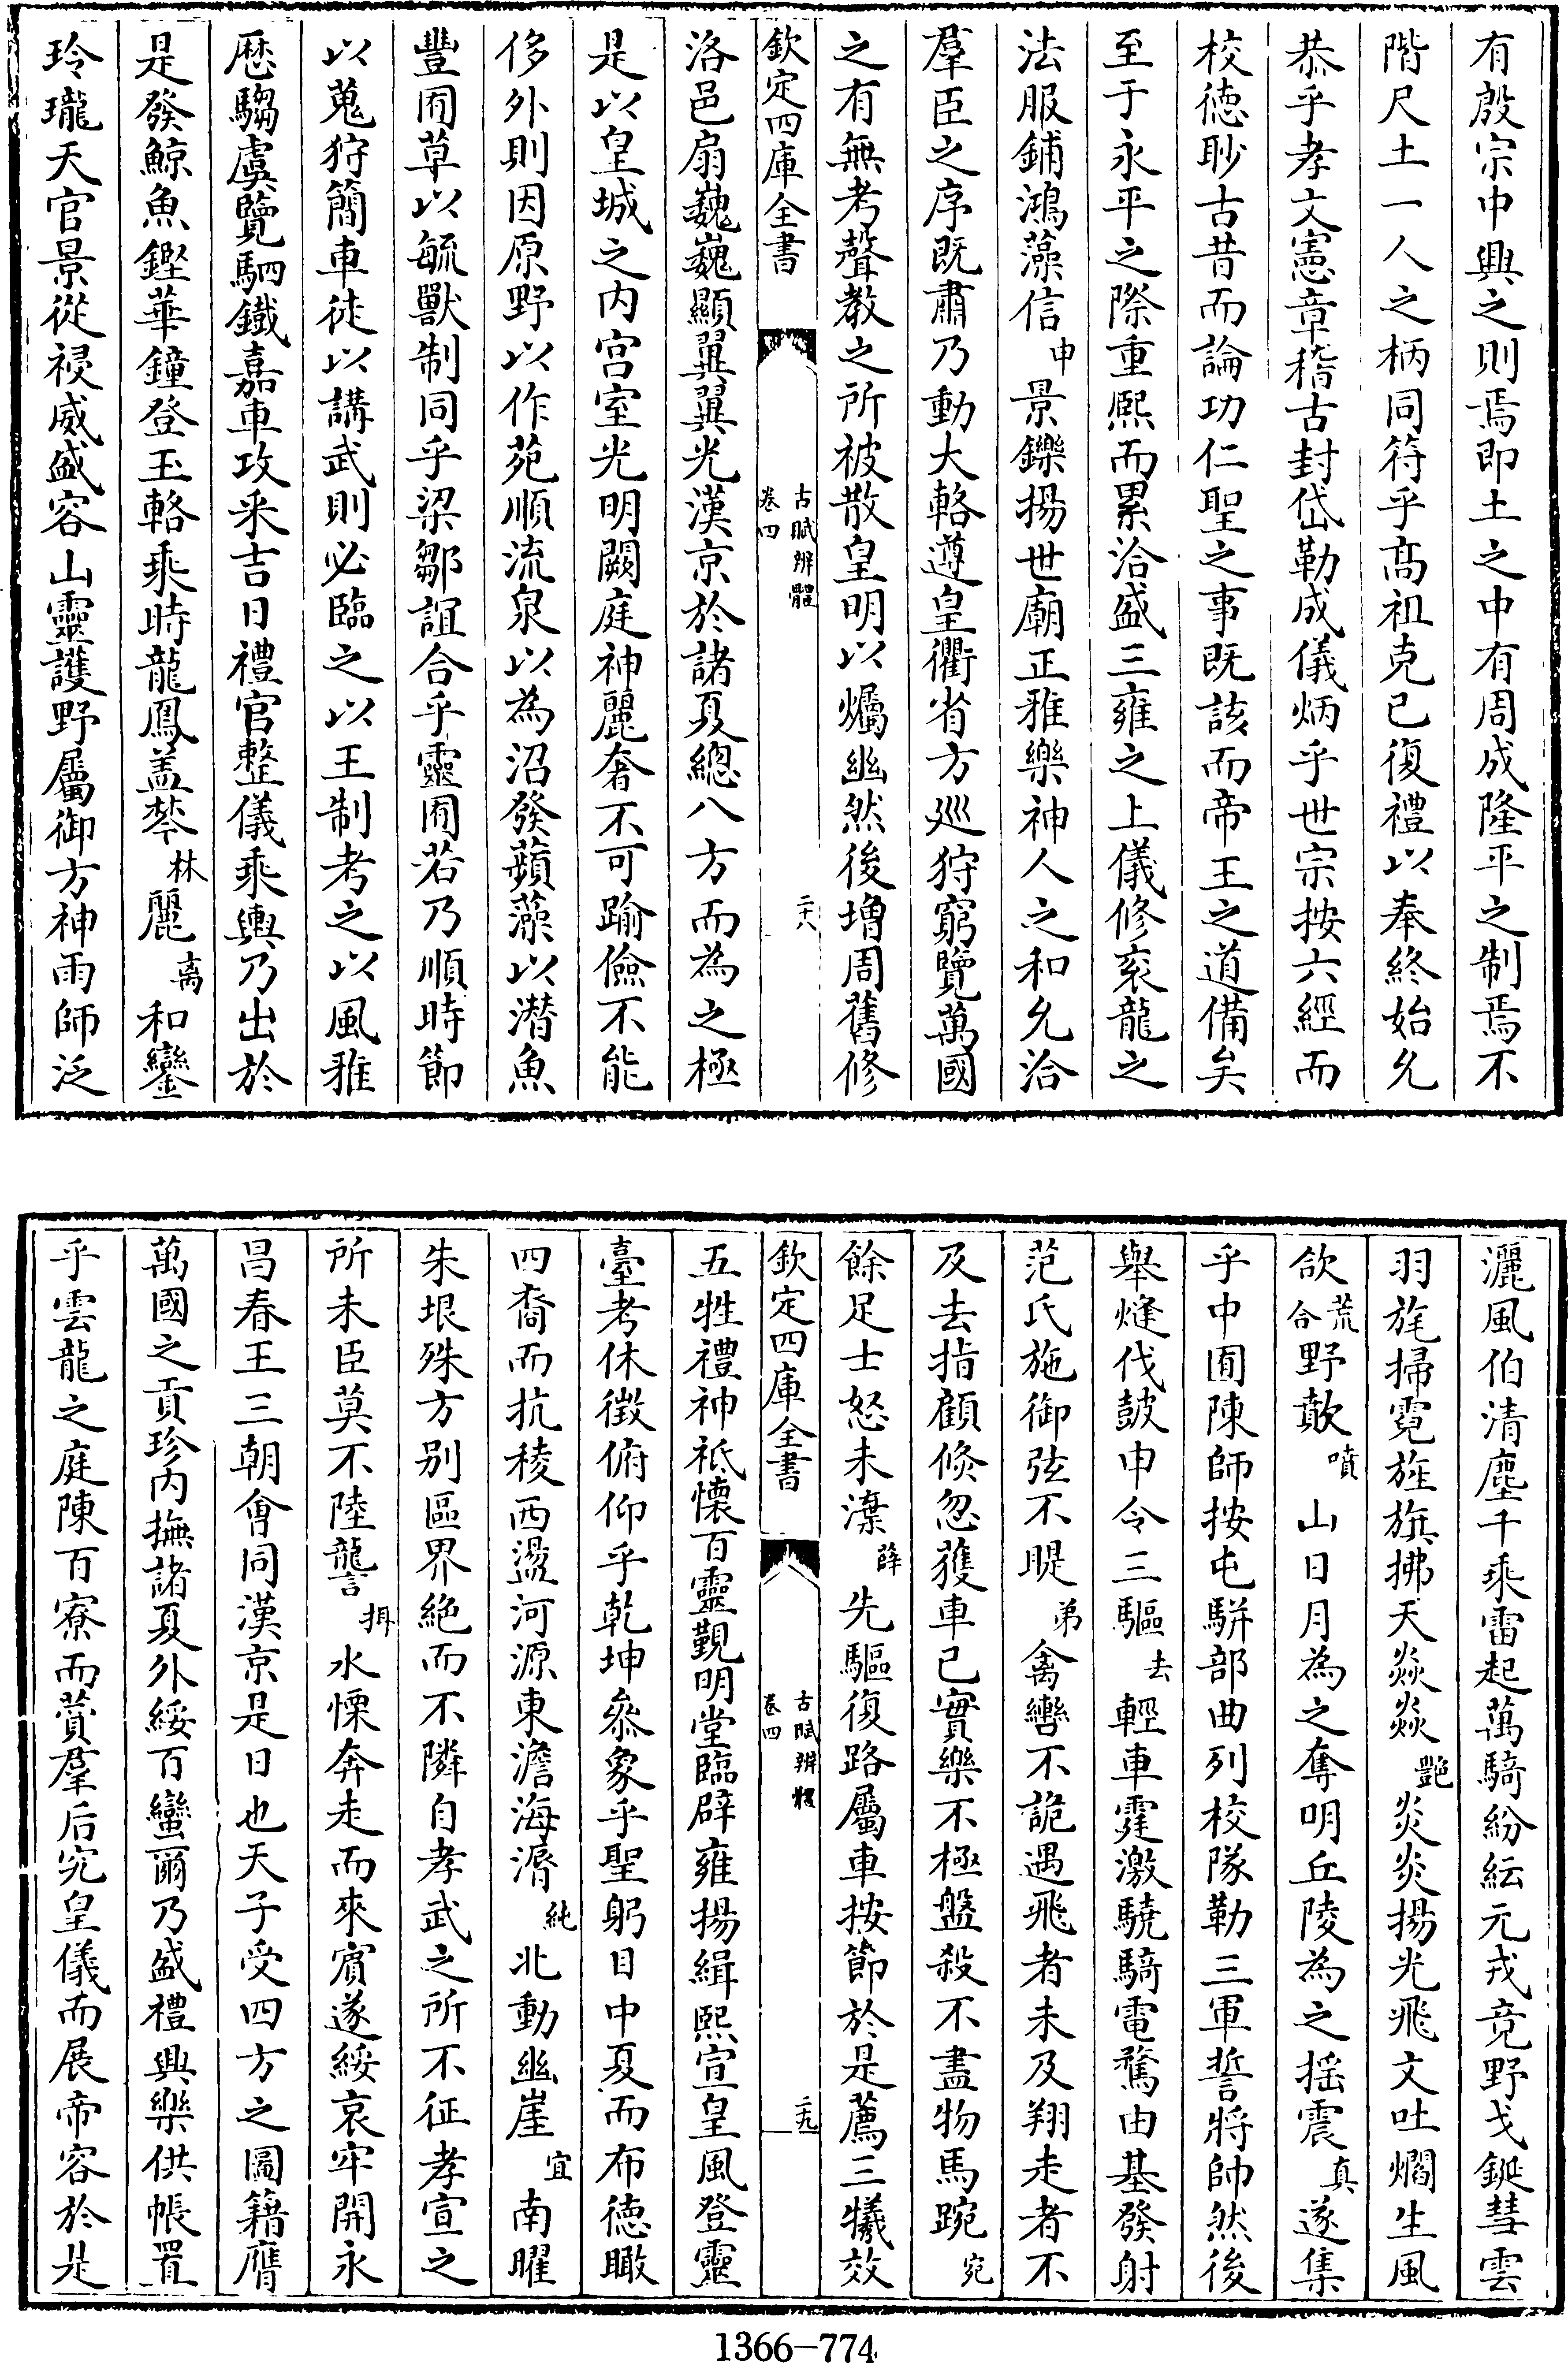 有殷宗中興之則焉即土之中有周成隆平之制焉不
階尺土一人之柄同符乎髙祖克已復禮以奉終始允
恭乎孝文憲章稽古封岱勒成儀炳乎世宗按六經而
校徳眇古昔而論功仁聖之事既該而帝王之道備矣
至于永平之際重熙而累洽盛三雍之上儀修衮龍之
法服鋪鴻藻信申景鑠揚世廟正雅樂神人之和允洽
羣臣之序既肅乃動大輅遵皇衢省方巡狩窮覽萬國
之有無考聲教之所被散皇明以爥幽然後増周舊修
欽定四庫全書
古賦辨體
卷四
二十八
洛邑扇巍巍顯翼翼光漢京於諸夏總八方而為之極
是以皇城之内宫室光明闕庭神麗奢不可踰儉不能
侈外則因原野以作苑順流泉以為沼發蘋藻以潜魚
豐囿草以毓獸制同乎梁鄒誼合乎靈囿若乃順時節
以蒐狩簡車徒以講武則必臨之以王制考之以風雅
厯騶虞覽駟鐵嘉車攻采吉日禮官整儀乘輿乃出於
是發鯨魚鏗華鐘登玉輅乘時龍鳳盖棽林麗离和鑾
玲瓏天官景從祲威盛容山靈護野屬御方神雨師泛
灑風伯清塵千乘雷起萬騎紛紜元戎竟野戈鋋彗雲
羽旄掃霓旌旗拂天焱焱艶炎炎揚光飛文吐爓生風
欱荒合野歕噴山日月為之奪明丘陵為之揺震真遂集
乎中囿陳師按屯駢部曲列校隊勒三軍誓將帥然後
舉㷭伐鼓申令三驅去輕車霆激驍騎電騖由基發射
范氏施御弦不睼弟禽轡不詭遇飛者未及翔走者不
及去指顧倐忽獲車已實樂不極盤殺不盡物馬踠宛
餘足士怒未渫薛先驅復路屬車按節於是薦三犧效
欽定四庫全書
古賦辨體
卷四
二十九
五牲禮神祇懐百靈覲明堂臨辟雍揚緝熙宣皇風登靈
臺考休徴俯仰乎乾坤叅象乎聖躬目中夏而布徳瞰
四裔而抗稜西盪河源東澹海漘純北動幽崖宜南曜
朱垠殊方别區界絶而不隣自孝武之所不征孝宣之
所未臣莫不陸讋揖水慄奔走而來賔遂綏哀牢開永
昌春王三朝會同漢京是日也天子受四方之圖籍膺
萬國之貢珍内撫諸夏外綏百蠻爾乃盛禮興樂供帳置
乎雲龍之庭陳百寮而賛羣后究皇儀而展帝容於是
1366-774